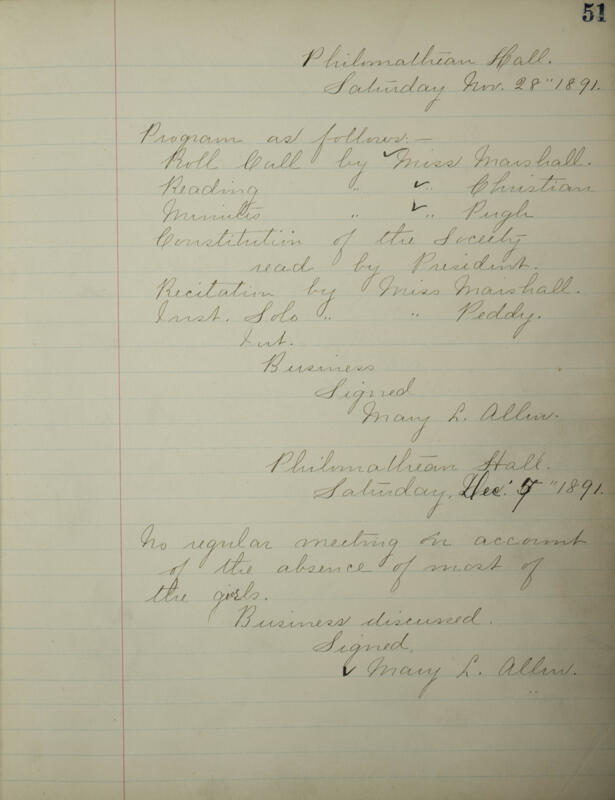 51
Philomathean Hall.
Saturday Nov. 28" 1891.
Program as follows:—
Roll Call by ✓Miss Marshall.
Reading " ✓" Christian
Minutes " ✓" Pugh
Constitution of the Society
read by President.
Recitation by Miss Marshall.
Inst. Solo " " Peddy.
Int.
Business
Signed
Mary L. Allen.
Philomathean Hall.
Saturday, Dec. " 1891.
No regular meeting on account
of the absence of most of
the girls.
Business discussed.
Signed,
✓ Mary L. Allen.